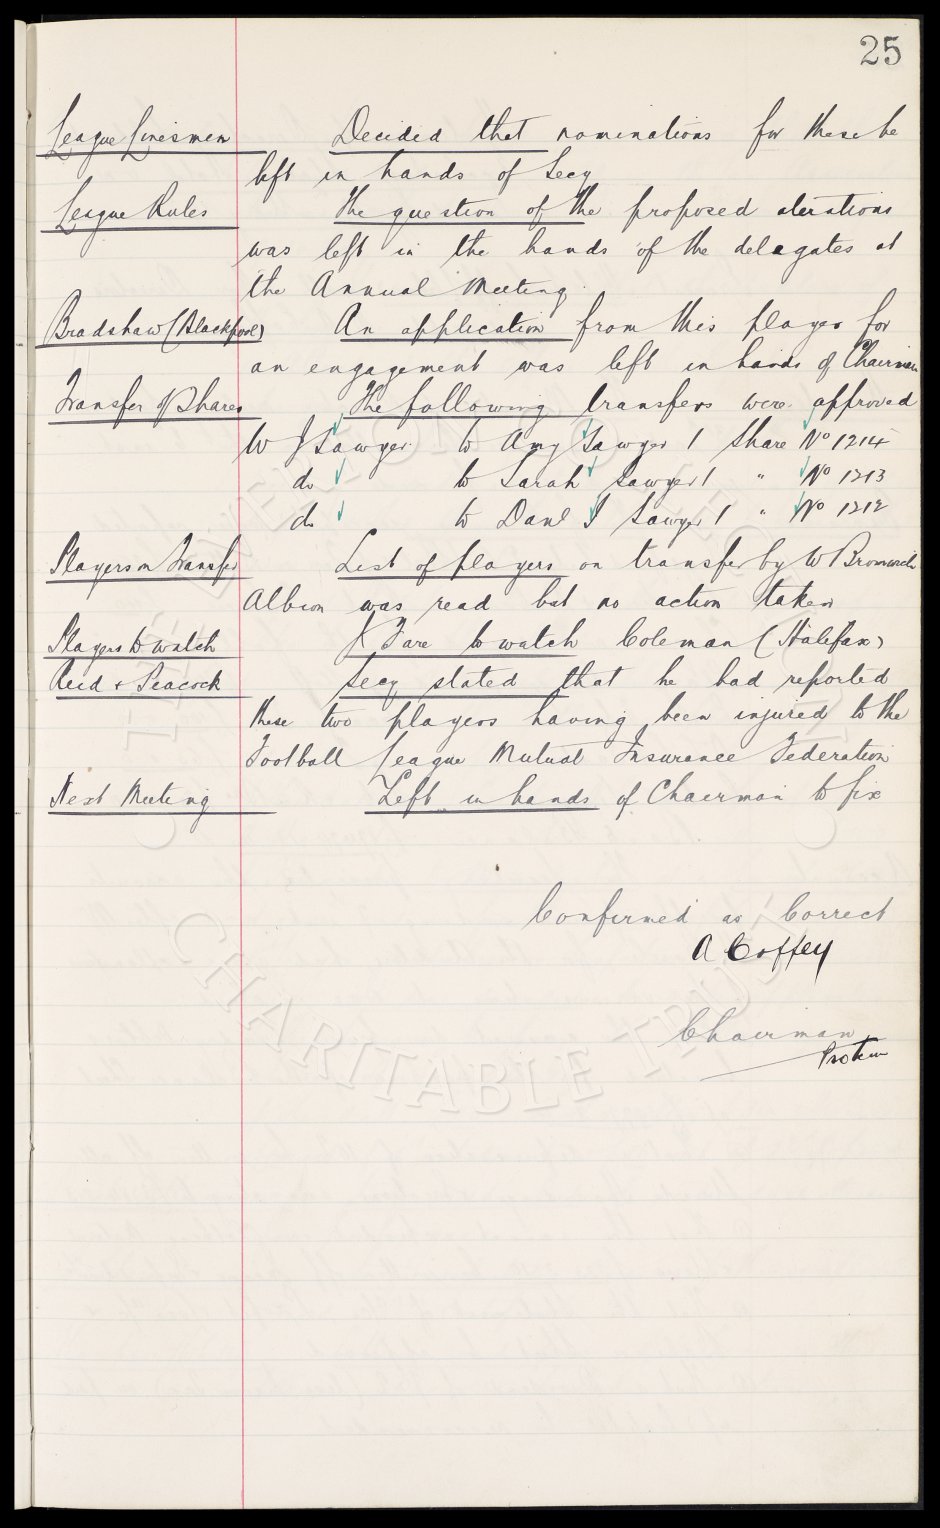 25
League Linesmen Decided that nominations for these be
left in hands of Secy
League Rules The question of the proposed alerations
was left in the hands of the delagates at
the Annual Meeting
Bradshaw (Blackpool) An application from this player for
an engagement was left in hands of Chairman
Transfer of Shares The following transfers were approved
W J Sawyer to Amy Sawyer 1 Share No 1214
do to Sarah Sawyer 1 " No 1213
do to Danl J Sawyer 1 " No 1212
Players on Transfer List of players on transfer by W Bromwich
Albion was read but no action taken
Players to watch J Fare to watch Coleman (Halifax)
Reid & Peacock Secy stated that he had reported
these two players having been injured to the
Football League Mutual Insurance Federation
Next Meeting Left in hands of Chairman to fix
Confirmed as Correct
A Coffey
Chairman
Protem
THE EVERTON COLLECTION
CHARITABLE TRUST